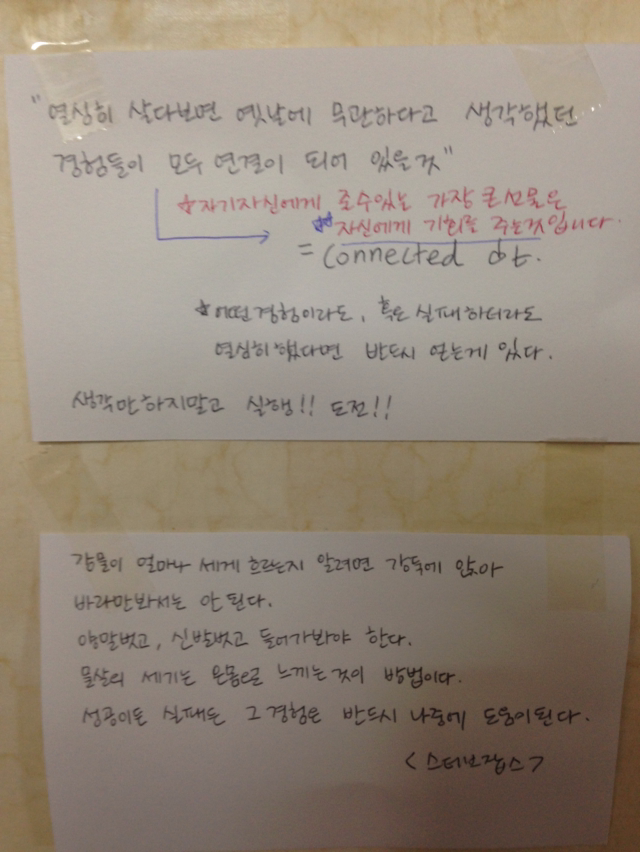 "열심히 살다보면 옛날에 무관하다고 생각했던
경험들이 모두 연결이 되어 있을것"
☆자기자신에게 줄수있는 가장 큰선물은
자신에게 기회를 주는것입니다.
= Connected dot.
☆어떤경험이라도, 혹은 실패하더라도
열심히했다면 반드시 얻는게 있다.
생각만하지말고 실행!! 도전!!
강물이 얼마나 세게 흐르는지 알려면 강둑에 앉아
바라만봐서는 안 된다.
양말벗고, 신발벗고 들어가봐야 한다.
물살의 세기는 온몸으로 느끼는것이 방법이다.
성공이든 실패든 그경험은 반드시 나중에 도움이된다.
<스티브잡스>